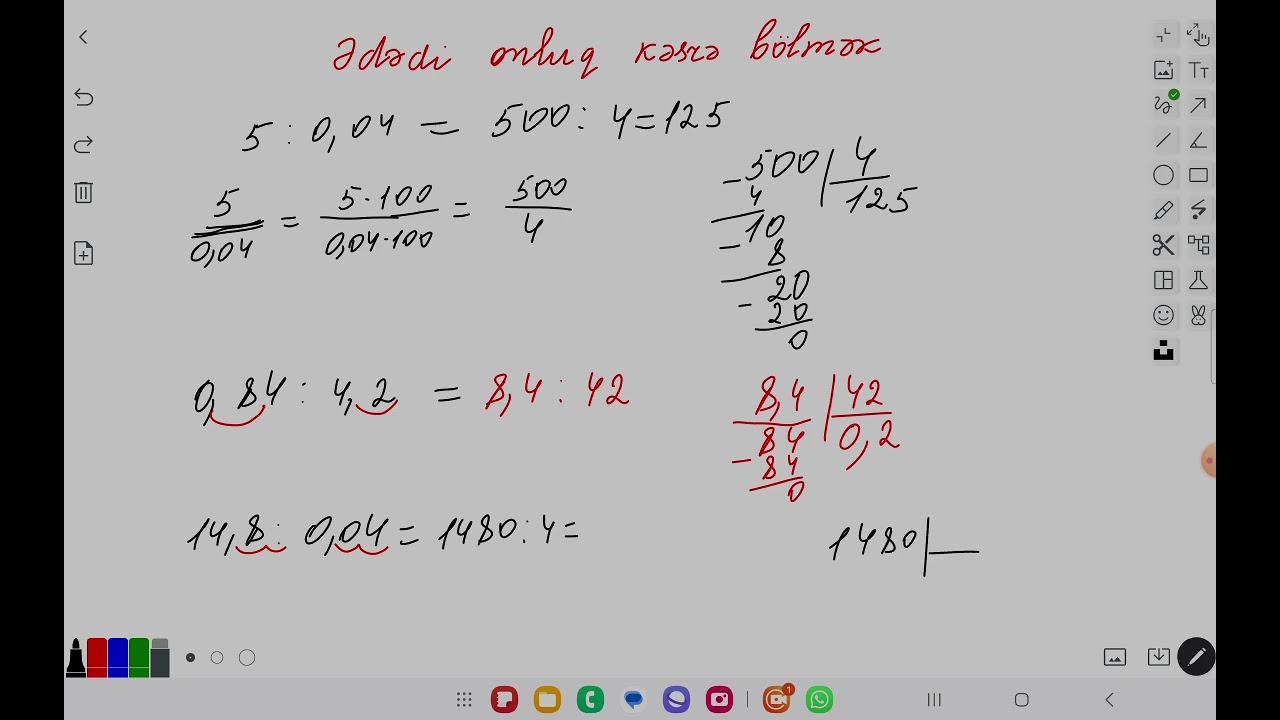 Ədədi onluq kəsrə bölmək
5 : 0,04 = 500 : 4 = 125
5/0,04 = 5·100/0,04·100 = 500/4
-500 | 4
4 | 125
10
- 8
20
- 20
0
0,84 : 4,2 = 8,4 : 42
8,4 | 42
84 | 0,2
- 84
0
14,8 : 0,04 = 1480 : 4 =
1480
TT
1